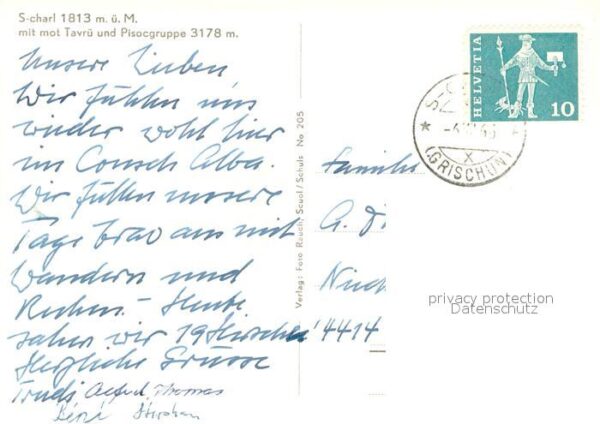 S-charl 1813 m. ü. M.
mit mot Tavrü und Pisocgruppe 3178 m.
Unsere Lieben
Wir fühlen uns
wieder wohl hier
im Alba.
Wir füllen unsere
Tage brav aus mit
Wandern und
Heute
sahen wir 19 Hirsche!
Herzliche Grüsse
Trudi, Alfred, Thomas
Stephan
Verlag: Foto Rauch, Scuol/Schuls No 205
HELVETIA
10
(GRISCHUN)
X
Familie
A.
4414
privacy protection
Datenschutz